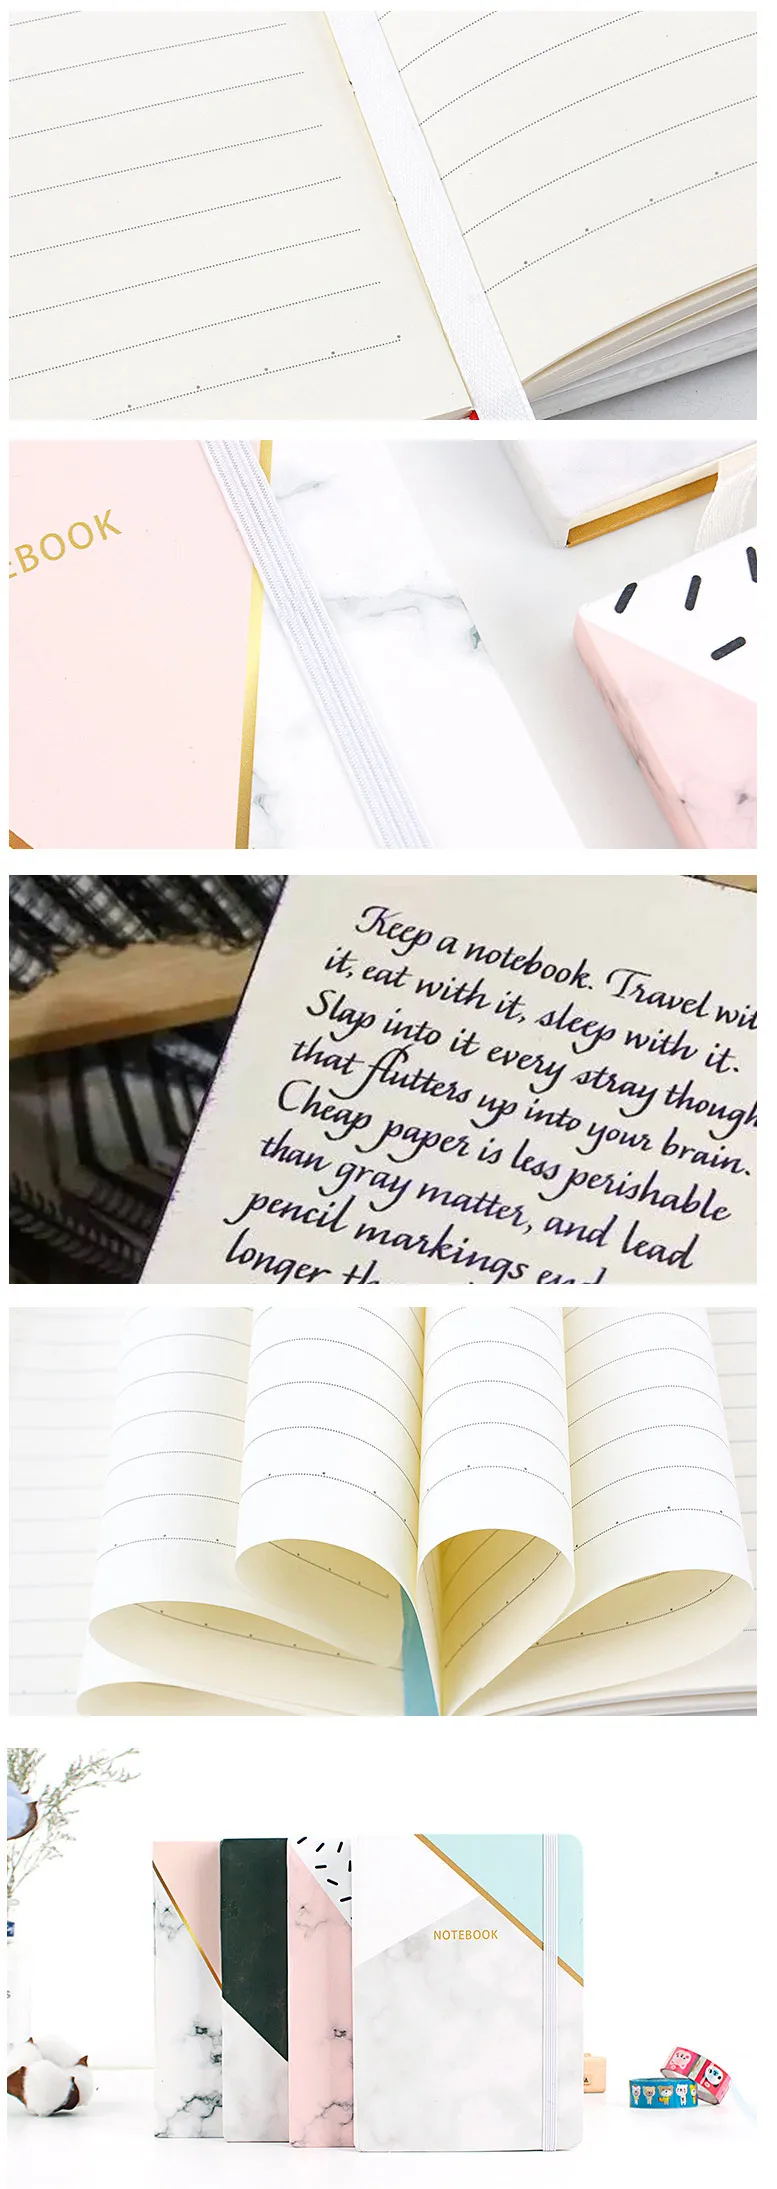 EBOOK
Keep a notebook. Travel wit
it, eat with it, sleep with it.
Slap into it every stray though
that flutters up into your brain.
Cheap paper is less perishable
than gray matter, and lead
pencil markings end
longer th
NOTEBOOK